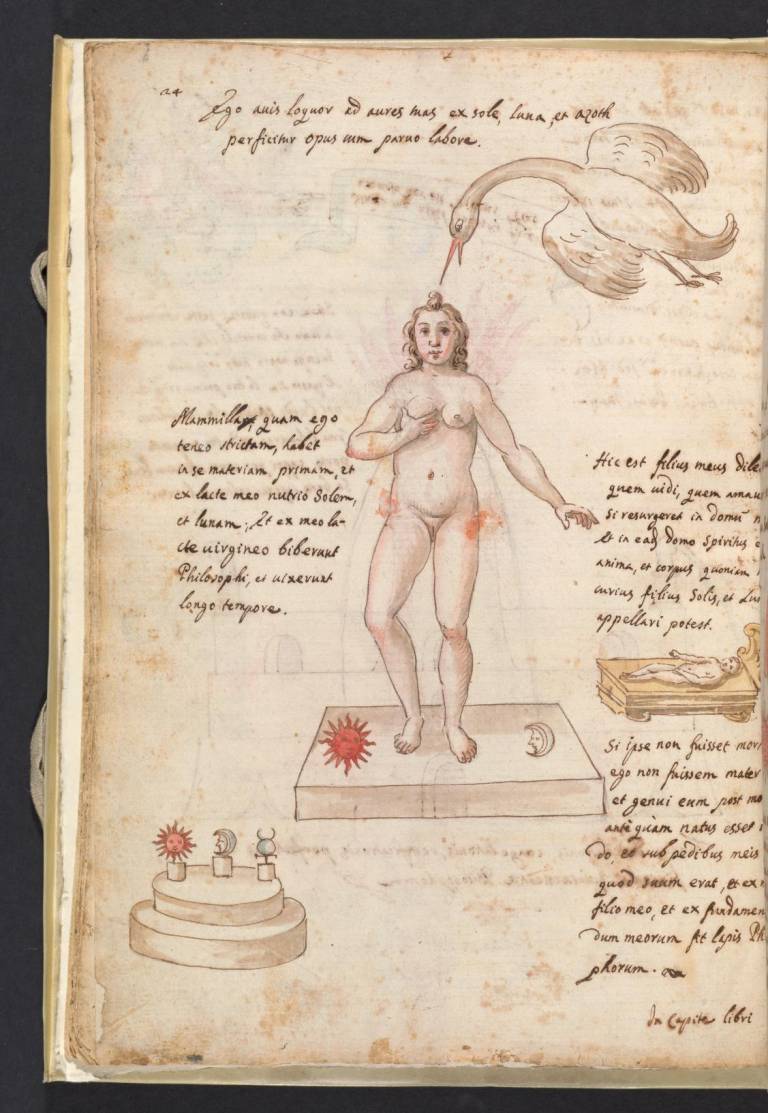 24
Ego auis loquor ad aures tuas ex sole, luna, et azoth
perficitur opus cum paruo labore.
Mammilla, quam ego
teneo strictam, habet
in se materiam primam, et
ex lacte meo nutrio Solem,
et lunam; Et ex meo la-
cte uirgineo biberunt
Philosophi, et uixerunt
longo tempore.
Hic est filius meus
quem uidi, quem
Si resurgeret in domū
Et in eaḋ domo Spiritus
anima, et corpus quoniam
curius filius Solis, et
appellari potest.
Si ipse non fuisset
ego non fuissem mater
et genui eum post
ante quàm natus esset
et sub pedibus meis
quod suum erat, et ex
filio meo, et ex
dum meorum fit lapis
phorum.
In Capite libri